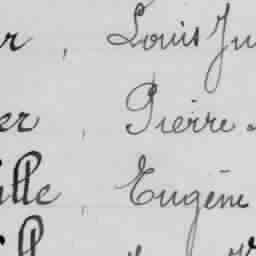 r, Louis Ju
er, Pierre
ille, Eugène